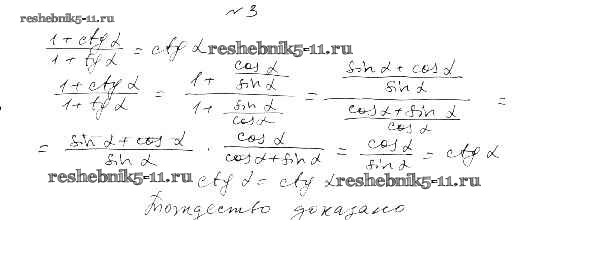 №3
reshebnik5-11.ru
(1 + ctg α)/(1 + tg α) = ctg α reshebnik5-11.ru
(1 + ctg α)/(1 + tg α) = (1 + cos α/sin α)/(1 + sin α/cos α) = ((sin α + cos α)/sin α)/((cos α + sin α)/cos α) =
= (sin α + cos α)/sin α · cos α/(cos α + sin α) = cos α/sin α = ctg α
reshebnik5-11.ru ctg α = ctg α reshebnik5-11.ru
Тождество доказано